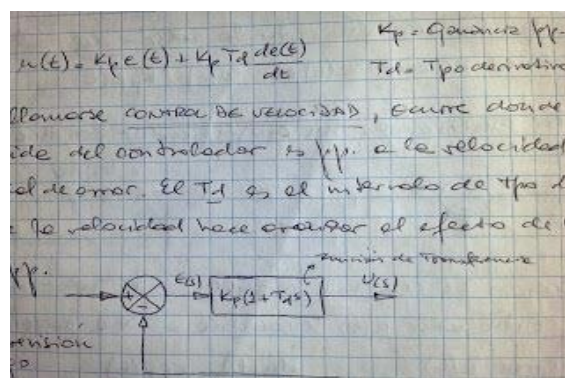 Kp = Ganancia pp.
u(t) = Kp e(t) + Kp Td de(t)/dt
Td = Tpo derivativo
llamarse CONTROL DE VELOCIDAD, ocurre donde
del controlador es pp. a la velocidad
de error. El Td es el intervalo de tpo
la velocidad hace avanzar el efecto de
pp.
Función de Transferencia
E(s) Kp(1+Tds) U(s)
+
-